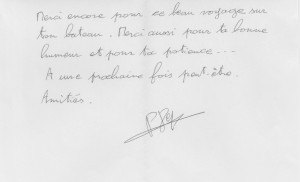 Merci encore pour ce beau voyage sur
ton bateau. Merci aussi pour ta bonne
humeur et pour ta patience...
A une prochaine fois peut-être.
Amitiés.